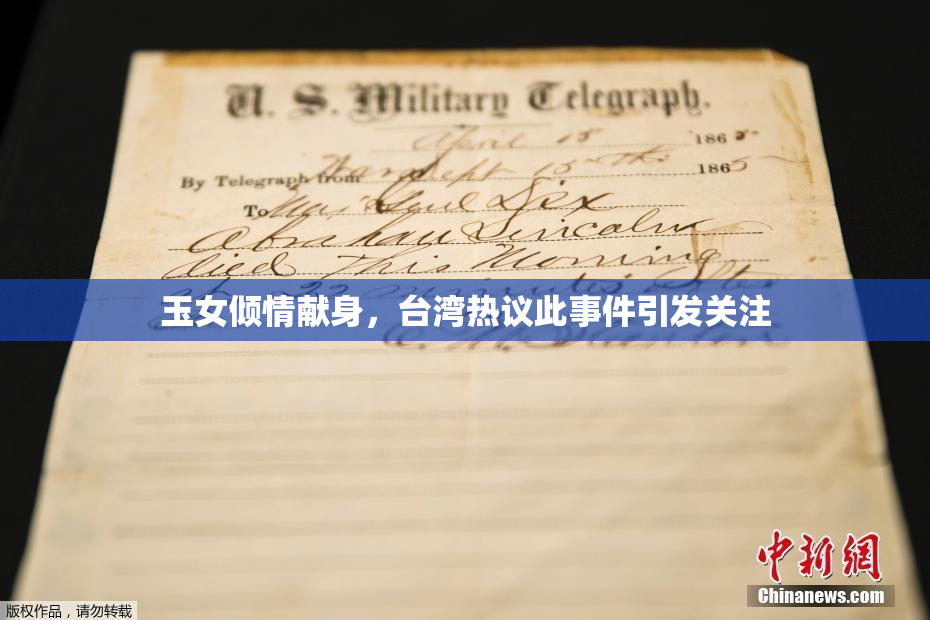 U. S. Military Telegraph.
April 15 1865
By Telegraph from War Dept 15th 1865
To Maj Genl Dix
Abraham Lincoln
died This Morning
at 22 minutes after
玉女倾情献身，台湾热议此事件引发关注
E. M. Stanton
中新網
Chinanews.com
版权作品，请勿转载